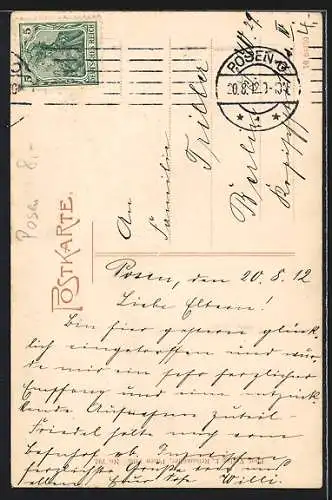 5
POSEN
20.8.12
POSTKARTE.
Posen 8,-
An
Familie
Triller
Berlin
Posen, den 20.8.12
Liebe Eltern!
Bin hier gestern glück-
lich eingetroffen und wur-
de mir ein sehr herzlicher
Empfang und eine entzük-
kende Aufnahme zuteil.
Friedel holte mich vom
Bahnhof ab. Inzwischen
herzlichste Grüße von uns
allen Euer Willi.